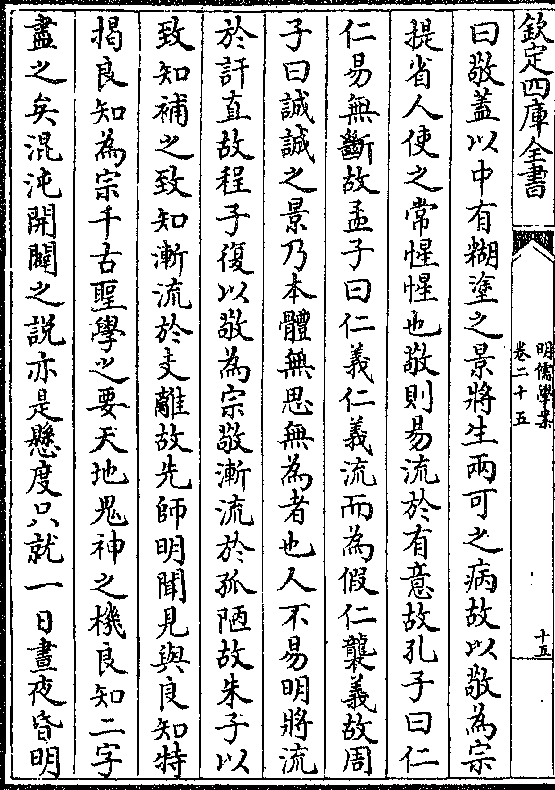 欽定四庫全書
明儒學案
卷二十五
十五
曰敬蓋以中有糊塗之景將生兩可之病故以敬為宗
提省人使之常惺惺也敬則易流於有意故孔子曰仁
仁易無斷故孟子曰仁義仁義流而為假仁襲義故周
子曰誠誠之景乃本體無思無為者也人不易明將流
於訐直故程子復以敬為宗敬漸流於孤陋故朱子以
致知補之致知漸流於支離故先師明聞見與良知特
揭良知為宗千古聖學之要天地鬼神之機良知二字
盡之矣混沌開闢之說亦是懸度只就一日晝夜昏明